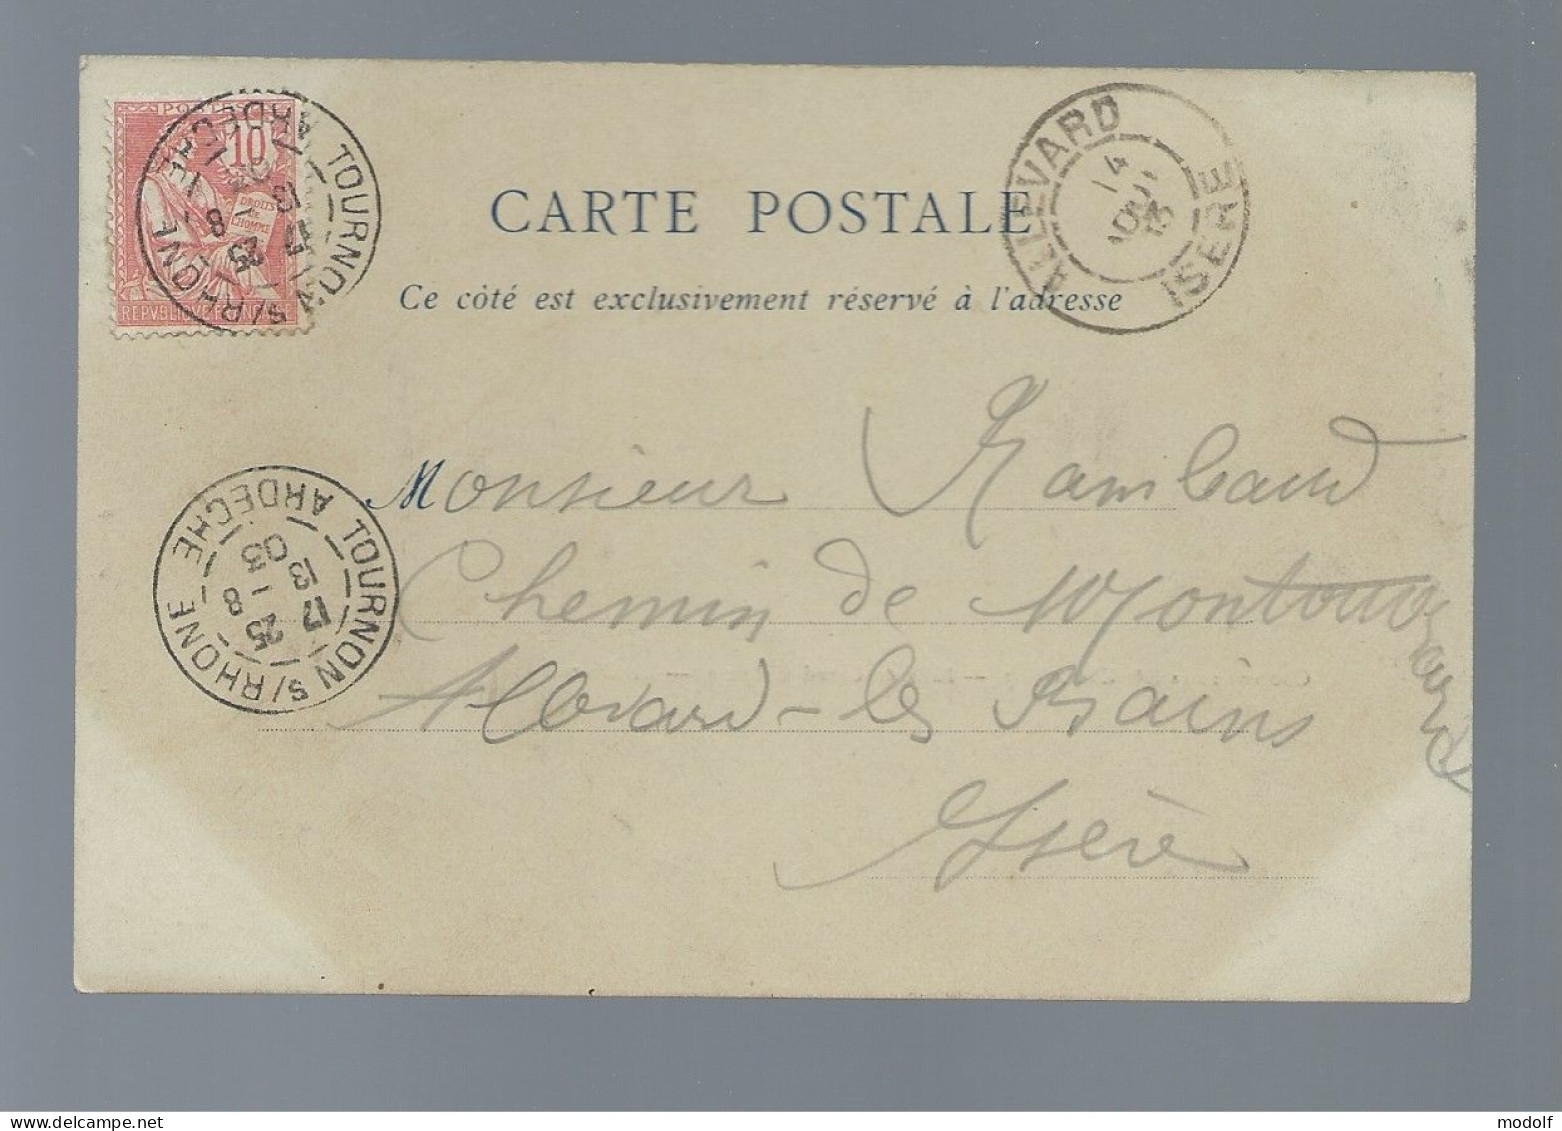 POSTES
10
DROITS
DE
L'HOMME
TOURNON S/RHONE
ARDECHE
17 25
13 - 8
03
ALLEVARD
14
AOUT
03
ISERE
CARTE POSTALE
Ce côté est exclusivement réservé à l'adresse
Monsieur Rambaud
Chemin de Montouvrard
Allevard-les Bains
Isère
TOURNON S/RHONE
ARDECHE
17 25
13 - 8
03
modolf